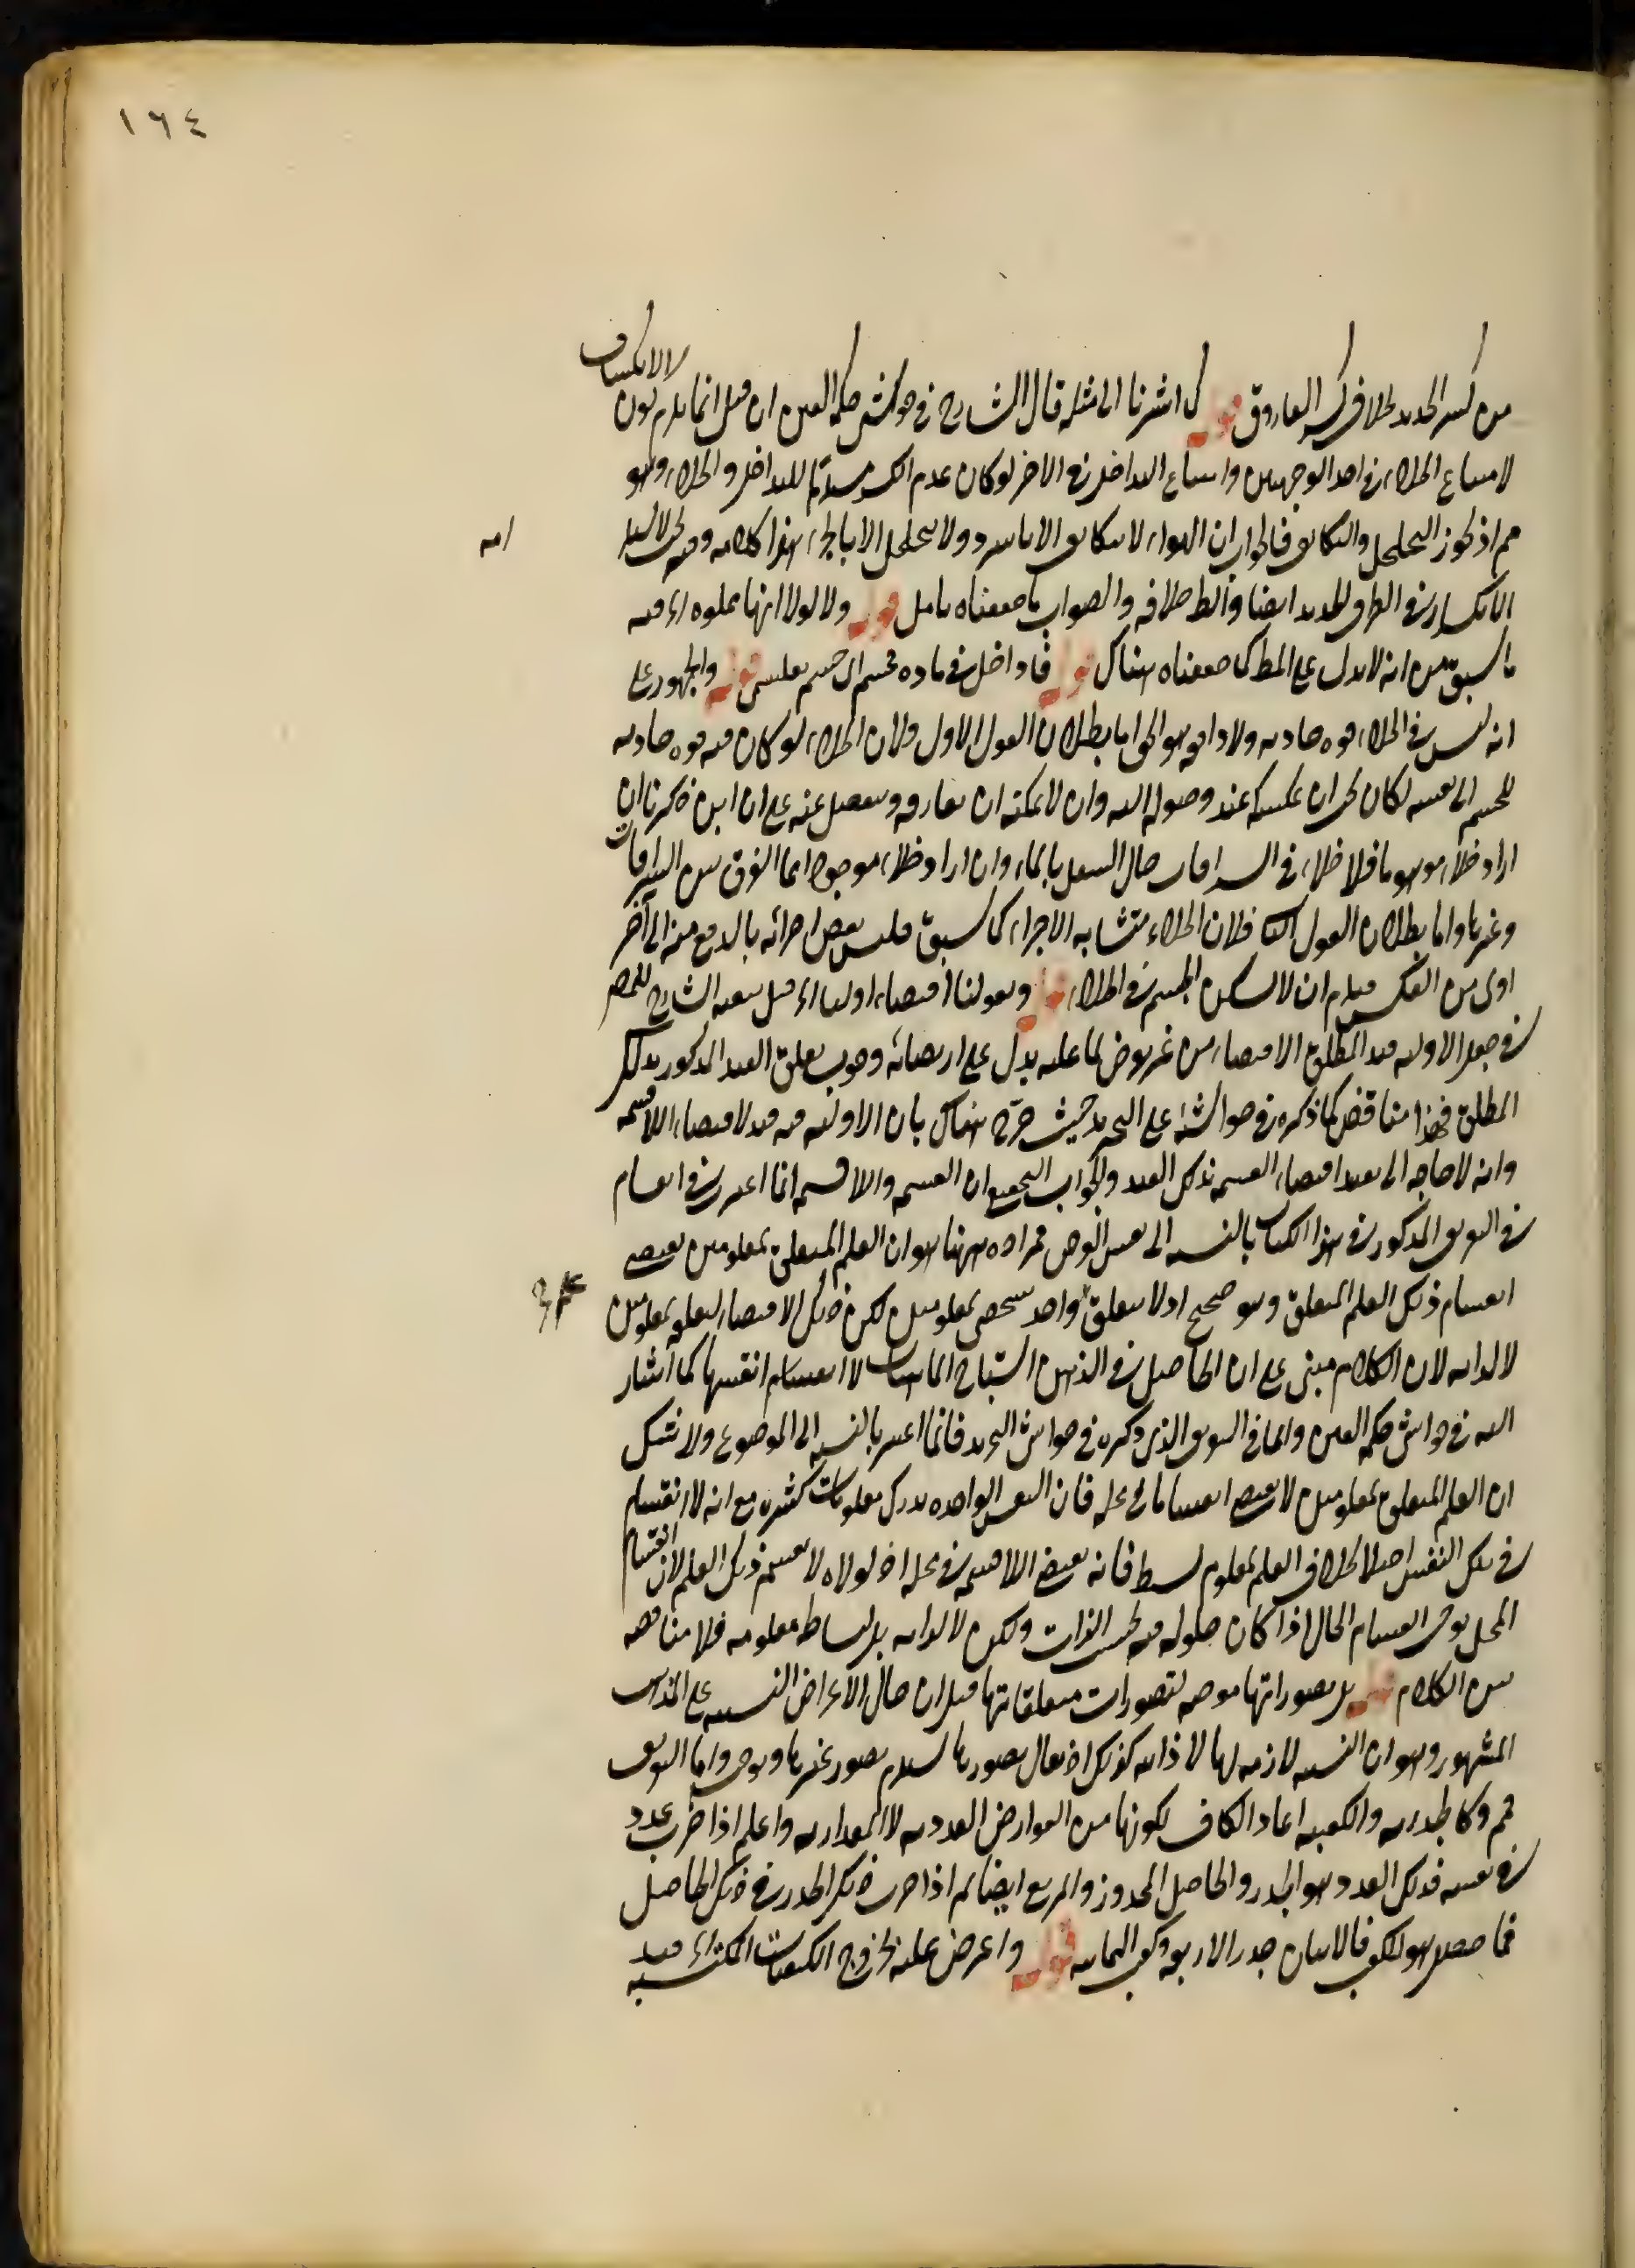 ١٦٤
من كسر الحديد بخلاف كسر القارورة قوله كما اشرنا الى مثله قال الشارح في حواشي حكمة العين ان قيل انما يلزم كون الانكسار
لامتناع الخلاء في احد الوجهين وامتناع التداخل في الاخر لو كان عدم الكسر مستلزما للتداخل والخلاء وهو
مم اذ يجوز التخلخل والتكاثف فالجواب ان الهواء لا يتكاثف الا بالتبرد ولا يتخلخل الا بالحر هذا كلامه وفيه
الانكسار في الظرف الحديد ايضا والظ خلافه والصواب ما حققناه تامل قوله ولا لولا انها مملوه اه فيه
ما سبق من انه لا يدل على المط كما حققناه هناك قوله فاداخل في ماده محسم اى جسم تعليمى قوله والجمهور على
انه ليس في الخلاء قوه جاذبه ولا دافعه وهو الحق اما بطلان القول الاول فلان الخلاء لو كان فيه قوه جاذبه
للجسم الى نفسه لكان يجب ان يمسكه عند وصوله اليه وان لا يمكنه ان يفارقه وينفصل عنه على ان ابن ذكريا ان
اراد خلاء موهوما فلا خلاء في السراقات حال الثقل بالماء وان اراد خلاء موجودا فما الفرق بين السراقات
وغيرها واما بطلان القول الثانى فلان الخلاء متشابه الاجزاء كما سبق فليس بعض اجزائه بالدفع منه الى آخر
اولى من العكس فيلزم ان لا يسكن الجسم في الخلاء قوله وبقولنا اقتضاء اوليا اه قيل تبعية الشارح للمص
في جعل الاوليه قيد المطلق الاقتضاء من غير تعرض لما عليه يدل على ارتضائه وجوب تعلق القيد المذكور بذلك
المطلق فهذا مناقض لما ذكره في حواشيه على التجريد حيث صرح هناك بان الاوليه فيه قيد لاقتضاء اللاقسمه
وانه لا حاجه الى تقييد اقتضاء القسمه بذلك القيد والجواب الصحيح ان القسمه واللاقسمه انما اعتبرت في انقسام
في التعريف المذكور في هذا الكتاب بالنسبه الى نفس العرض فمراده ههنا هو ان العلم المتعلق بمعلومين يقتضى
انقسام ذلك العلم المتعلق وهو صحيح اذ لا يتعلق واحد شخصى بمعلومين لكن ذلك الاقتضاء لتعلقه بمعلومين
لا لذاته لان الكلام مبنى على ان الحاصل في الذهن اشباح الماهيات لا انقسام انفسها كما اشار
اليه في حواشي حكمة العين واما في التعريف الذى ذكره في حواشي التجريد فانما اعتبر بالنسبه الى الموضوع ولا شك
ان العلم المتعلق بمعلومين لا يقتضى انقساما فى محله فان النفس الواحده يدرك معلومات كثيره مع انه لا انقسام
في تلك النفس اصلا بخلاف العلم بمعلوم بسيط فانه يقتضى اللاقسمه في محله اذ لولاه لا نقسم ذلك العلم لان انقسام
المحل يوجب انقسام الحال اذا كان حلوله فيه بحسب الذات ولكن لا لذاته بل لبساطه معلومه فلا مناقضه
بين الكلام قوله بل تصوراتها موجبه لتصورات متعلقاتها قيل ان حال الاعراض النسبيه على المذهب
المشهور وهو ان النسبه لازمه لها لا ذاتيه كذلك اذ يقال تصورها يستلزم تصور غيرها ويوجبه واما التعريف
فمم وكالجذريه والكعبيه اعاد الكاف لكونها من العوارض العدديه لا المقداريه واعلم اذا ضرب عدد
في نفسه فذلك العدد هو الجذر والحاصل المجذور والمربع ايضا ثم اذا ضرب ذلك الجذر في ذلك الحاصل
فما حصل هو الكعب فالاثنان جذر الاربعه وكعب الثمانيه قوله واعترض عليه بخروج الكيفيات المكتسبه اه قيد